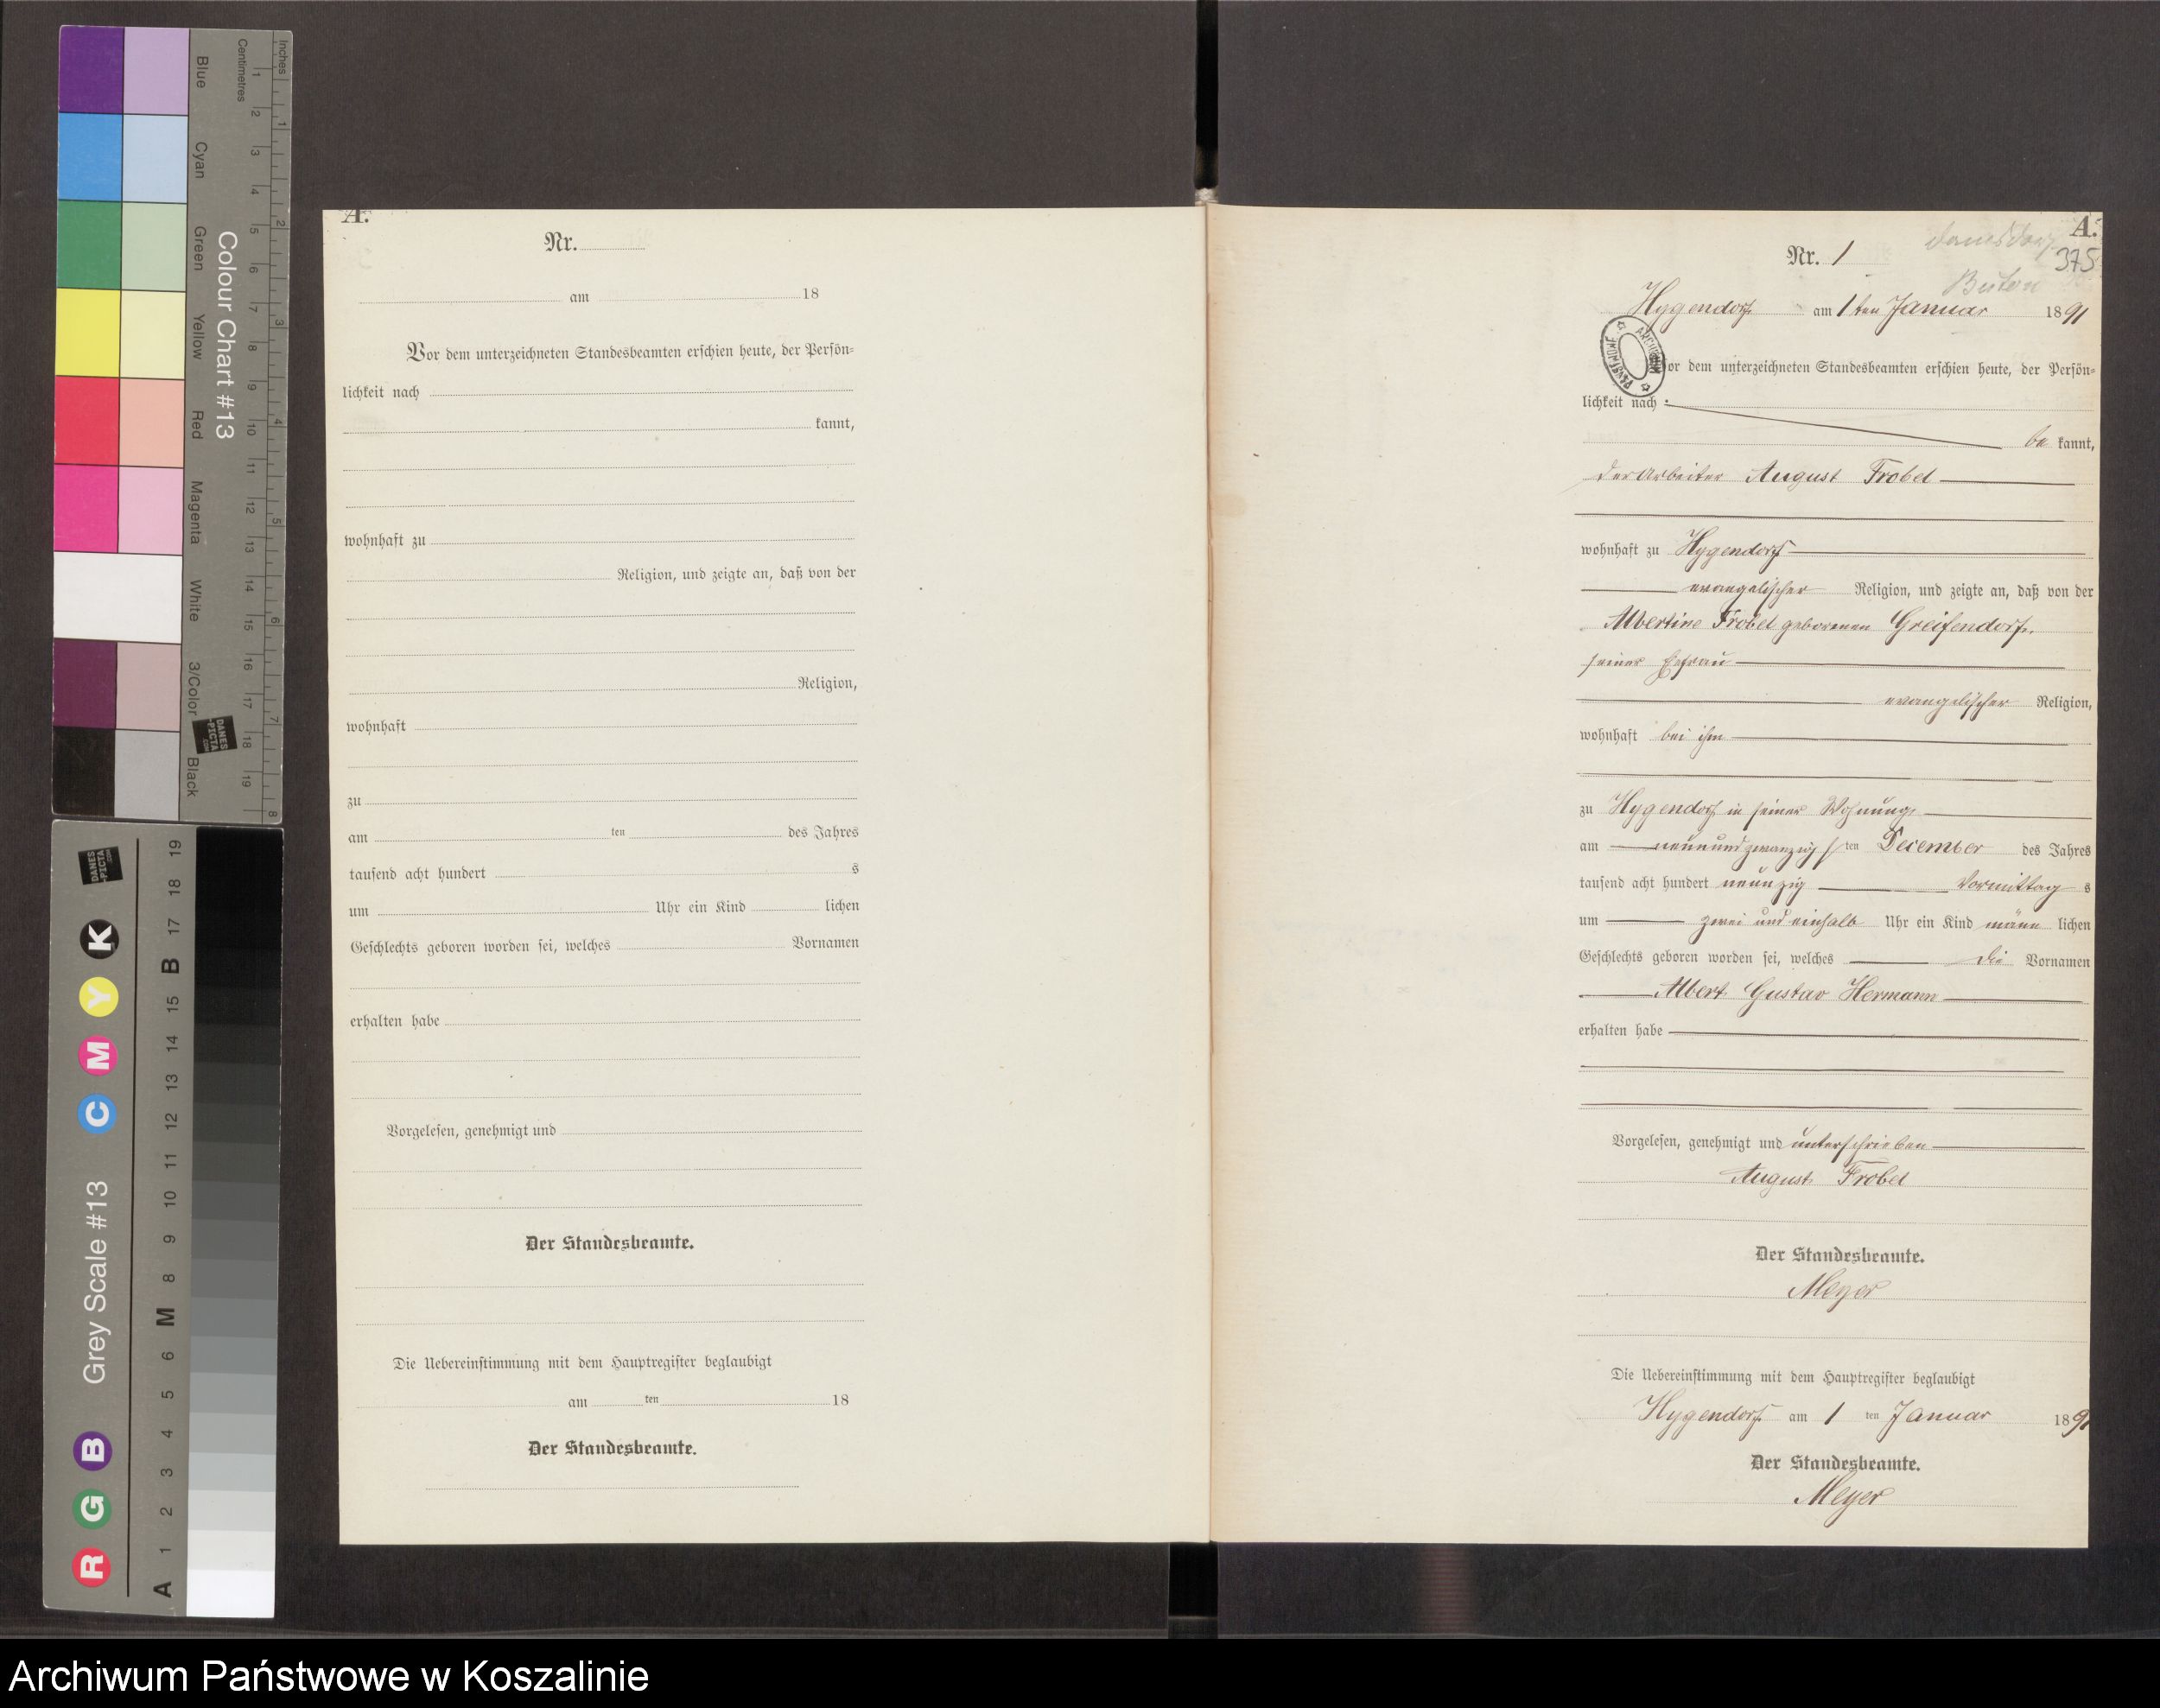 Inches
Centimetres
Colour Chart #13
Blue
Cyan
Green
Yellow
Red
Magenta
White
3/Color
Black
DANES
-PICTA
.COM
Grey Scale #13
R G B C M Y K
A 1 2 3 4 5 6 M 8 9 10 11 12 13 14 15 B 17 18 19
A.
Nr.
am 18
Vor dem unterzeichneten Standesbeamten erschien heute, der Persön=
lichkeit nach
kannt,
wohnhaft zu
Religion, und zeigte an, daß von der
Religion,
wohnhaft
zu
am ten des Jahres
tausend acht hundert s
um Uhr ein Kind lichen
Geschlechts geboren worden sei, welches Vornamen
erhalten habe
Vorgelesen, genehmigt und
Der Standesbeamte.
Die Uebereinstimmung mit dem Hauptregister beglaubigt
am ten 18
Der Standesbeamte.
A.
Nr. 1
375
Hygendorf am 1ten Januar 1891
ARCHIWUM PAŃSTWOWE
Vor dem unterzeichneten Standesbeamten erschien heute, der Persön=
lichkeit nach
be kannt,
der Arbeiter August Frobel
wohnhaft zu Hygendorf
evangelischer Religion, und zeigte an, daß von der
Albertine Frobel geborenen Greifendorf,
seiner Ehefrau
evangelischer Religion,
wohnhaft bei ihm
zu Hygendorf in seiner Wohnung,
am neunundzwanzigsten December des Jahres
tausend acht hundert neunzig Vormittag s
um zwei und einhalb Uhr ein Kind männ lichen
Geschlechts geboren worden sei, welches die Vornamen
Albert Gustav Hermann
erhalten habe
Vorgelesen, genehmigt und unterschrieben
August Frobel
Der Standesbeamte.
Meyer
Die Uebereinstimmung mit dem Hauptregister beglaubigt
Hygendorf am 1 ten Januar 1891
Der Standesbeamte.
Meyer
Archiwum Państwowe w Koszalinie